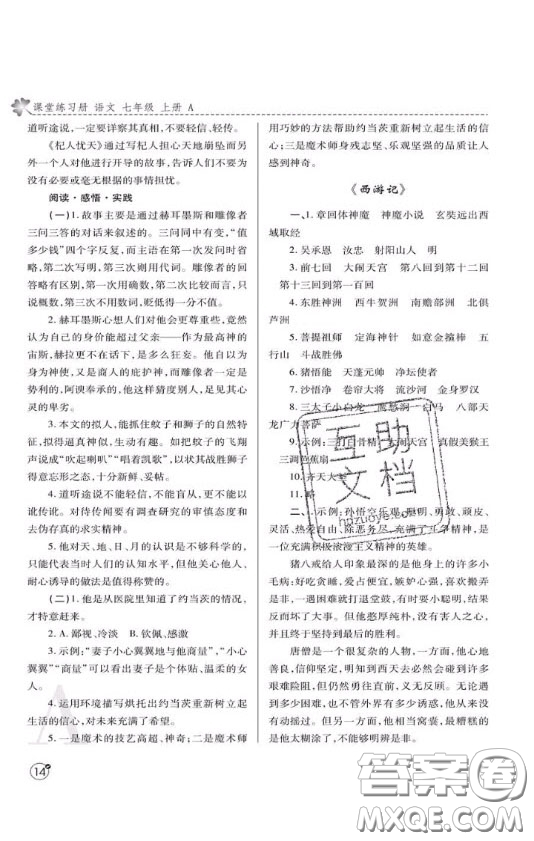 课堂练习册 语文 七年级 上册 A
道听途说,一定要详察其真相,不要轻信、轻传。
《杞人忧天》通过写杞人担心天地崩坠而另
外一个人对他进行开导的故事,告诉人们不要为
没有必要或毫无根据的事情担忧。
阅读·感悟·实践
(一)1. 故事主要是通过赫耳墨斯和雕像者
三问三答的对话来叙述的。三问同中有变,“值
多少钱”四个字反复,而主语在第一次发问时省
略,第二次写明,第三次则用代词。雕像者的回
答略有区别,第一次用数词,第二次用比较而言,只
说贵些,第三次不用数词,贬低得一分不值。
2. 赫耳墨斯心想人们对他会更尊重些,竟然
认为自己的身价能超过父亲——作为最高神的
宙斯,赫拉更不在话下,是多么狂妄。他自以为
身为神使,又是商人的庇护神,而雕像者一定是
势利的、阿谀奉承的,他这样猜度别人,足见其心
灵的卑劣。
3. 本文的拟人,能抓住蚊子和狮子的自然特
征,拟得逼真神似,生动有趣。如把蚊子的飞翔
声说成“吹起喇叭”“唱着凯歌”,以状其战胜狮子
得意忘形之态,十分新鲜、妥帖。
4. 道听途说不能轻信,不能盲从,更不能以
讹传讹。对待传闻要有调查研究的审慎态度和
去伪存真的求实精神。
5. 他对天、地、日、月的认识是不够科学的,
只能代表当时人们的认知水平,但他关心他人、
耐心诱导的做法是值得称赞的。
(二)1. 他是从医院里知道了约当茨的情况,
才特意赶来。
2. A. 鄙视、冷淡 B. 钦佩、感激
3. 示例:“妻子小心翼翼地与他商量”,“小心
翼翼”“商量”可以看出妻子是个体贴、温柔的女
人。
4. 运用环境描写烘托出约当茨重新树立起
生活的信心,对未来充满了希望。
5. 一是魔术的技艺高超、神奇;二是魔术师
用巧妙的方法帮助约当茨重新树立起生活的信
心;三是魔术师身残志坚、乐观坚强的品质令人
感到神奇。
《西游记》
一、1. 章回体神魔 神魔小说 玄奘远出西
域取经
2. 吴承恩 汝忠 射阳山人 明
3. 前七回 大闹天宫 第八回到第十二回
第十三回到第一百回
4. 东胜神洲 西牛贺洲 南赡部洲 北俱
芦洲
5. 菩提祖师 定海神针 如意金箍棒 五
行山 斗战胜佛
6. 猪悟能 天蓬元帅 净坛使者
7. 沙悟净 卷帘大将 流沙河 金身罗汉
8. 三太子小白龙 鹰愁涧 白马 八部天
龙广力菩萨
9. 示例:三打白骨精 大闹天宫 真假美猴王
三调芭蕉扇
10. 齐天大圣
11. 略
二、示例:孙悟空乐观、聪明、勇敢、顽皮、
灵活、热爱自由、除恶务尽,充满了斗争精神,是
一位充满积极浪漫主义精神的英雄。
猪八戒给人印象最深的是他身上的许多小
毛病:好吃贪睡,爱占便宜,嫉妒心强,喜欢搬弄
是非,也喜欢拈花惹草,有时要小聪明,出现困难
时打退堂鼓。但他憨厚纯朴,没有害人之心,取
经途中除妖伏魔,立下大功。
唐僧是一个很复杂的人物,一方面,他心地
善良,信仰坚定,明知去西天必然会碰到许多艰
难险阻,但仍执意前往,义无反顾。无论遇到多
少困难,不管有多少威逼利诱,他取经的决心从来
没有动摇过。但另一方面,他相当窝囊,最糟糕的
是他太糊涂了,不能够明辨是非。
互助
文档
hazuoye.com
A
14
答案卷
MXQE.COM